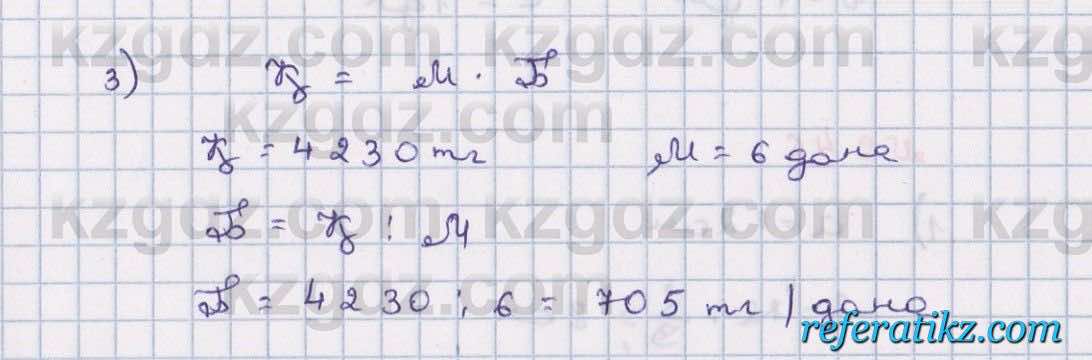 kzgdz.com kzgdz.com kzgdz.com
3) Қ = М · Б
kzgdz.com
Қ = 4230 тг М = 6 дана
kzgdz.com kzgdz.com kzgdz.com
Б = Қ : М
kzgdz.com
Б = 4230 : 6 = 705 тг / дана
referatikz.com